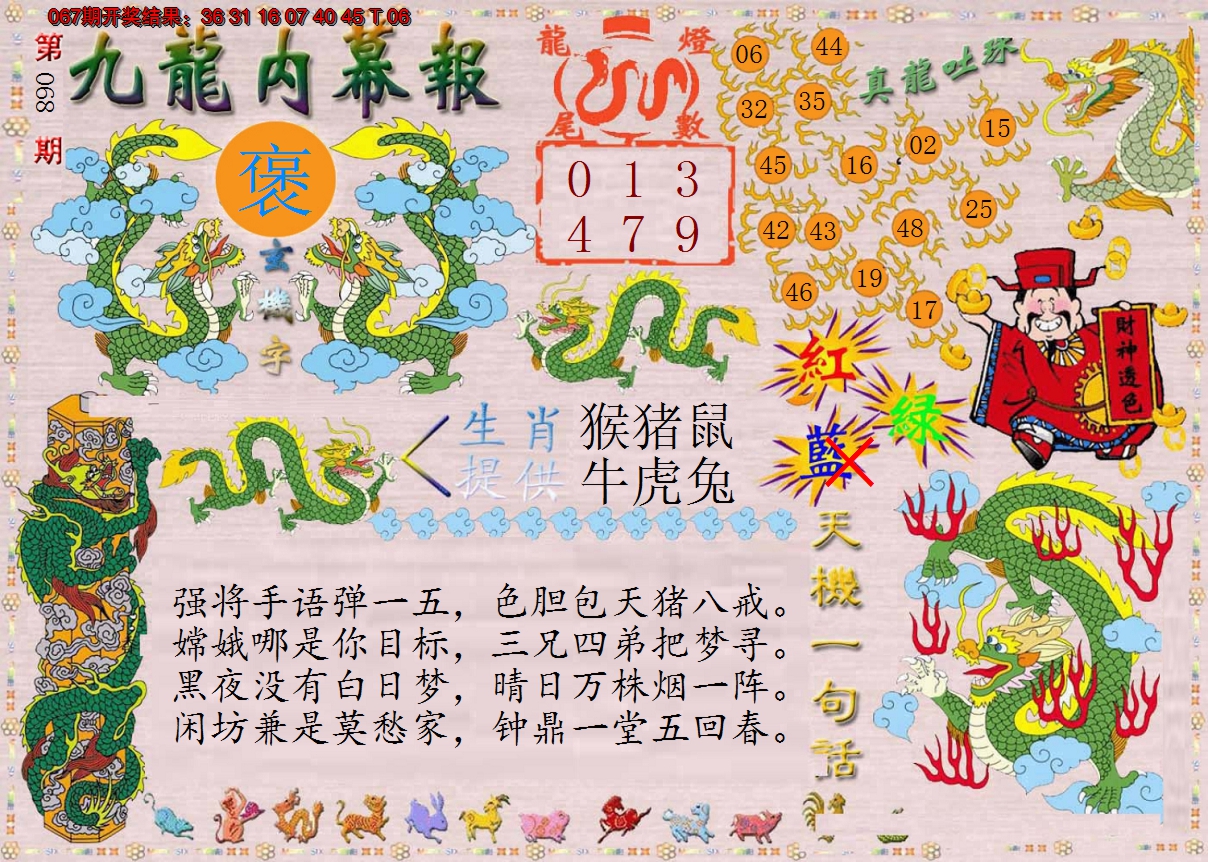 067期开奖结果：36 31 16 07 40 45 T 06
第068期
九龍内幕報
褒
玄機字
龍燈
尾數
0 1 3
4 7 9
真龍吐珠
06 44
32 35
45 16 02 15
42 43 48 25
46 19 17
財神透色
紅
綠
藍
生肖 猴猪鼠
提供 牛虎兔
天機一句話
强将手语弹一五，色胆包天猪八戒。
嫦娥哪是你目标，三兄四弟把梦寻。
黑夜没有白日梦，晴日万株烟一阵。
闲坊兼是莫愁家，钟鼎一堂五回春。